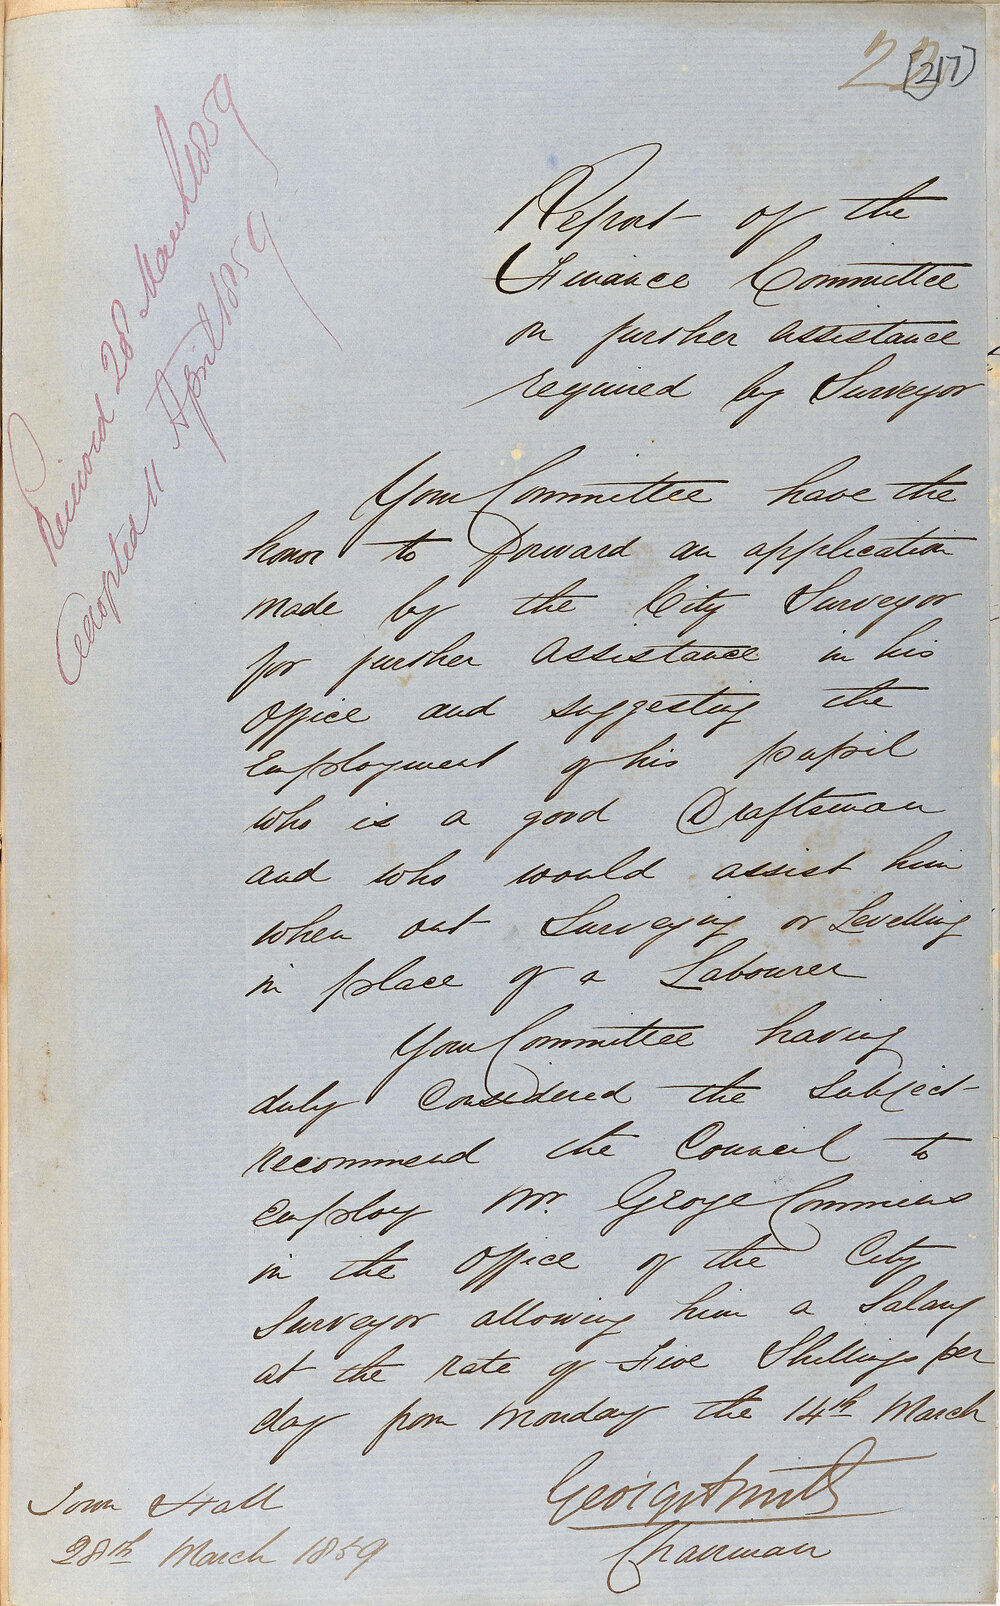 22
(217)
Received 28 March 1859
Adopted 11 April 1859
Report of the
Finance Committee
on further assistance
required by Surveyor
Your Committee have the
honor to forward an application
made by the City Surveyor
for further assistance in his
Office and suggesting the
Employment of his pupil
who is a good Draftsman
and who would assist him
when out Surveying or Levelling
in place of a Labourer
Your Committee having
duly Considered the Subject
recommend the Council to
Employ Mr. George Commins
in the Office of the City
Surveyor allowing him a Salary
at the rate of Five Shillings per
day from Monday the 14th March
George Smith
Chairman
Town Hall
28th March 1859